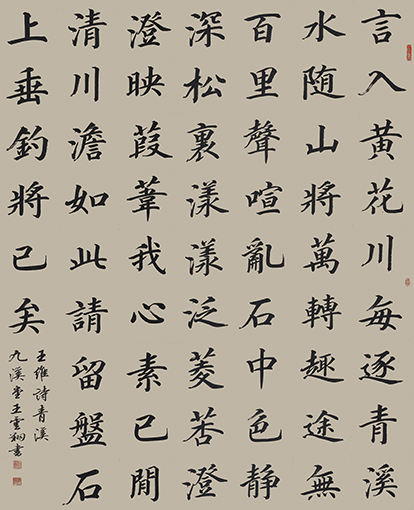 言入黄花川每逐青溪
水随山將萬轉趣途無
百里聲喧亂石中色靜
深松裏漾漾泛菱莕澄
澄映葭葦我心素已閒
清川澹如此請留盤石
上垂釣將已矣
王維詩青溪
九溪堂王雲書